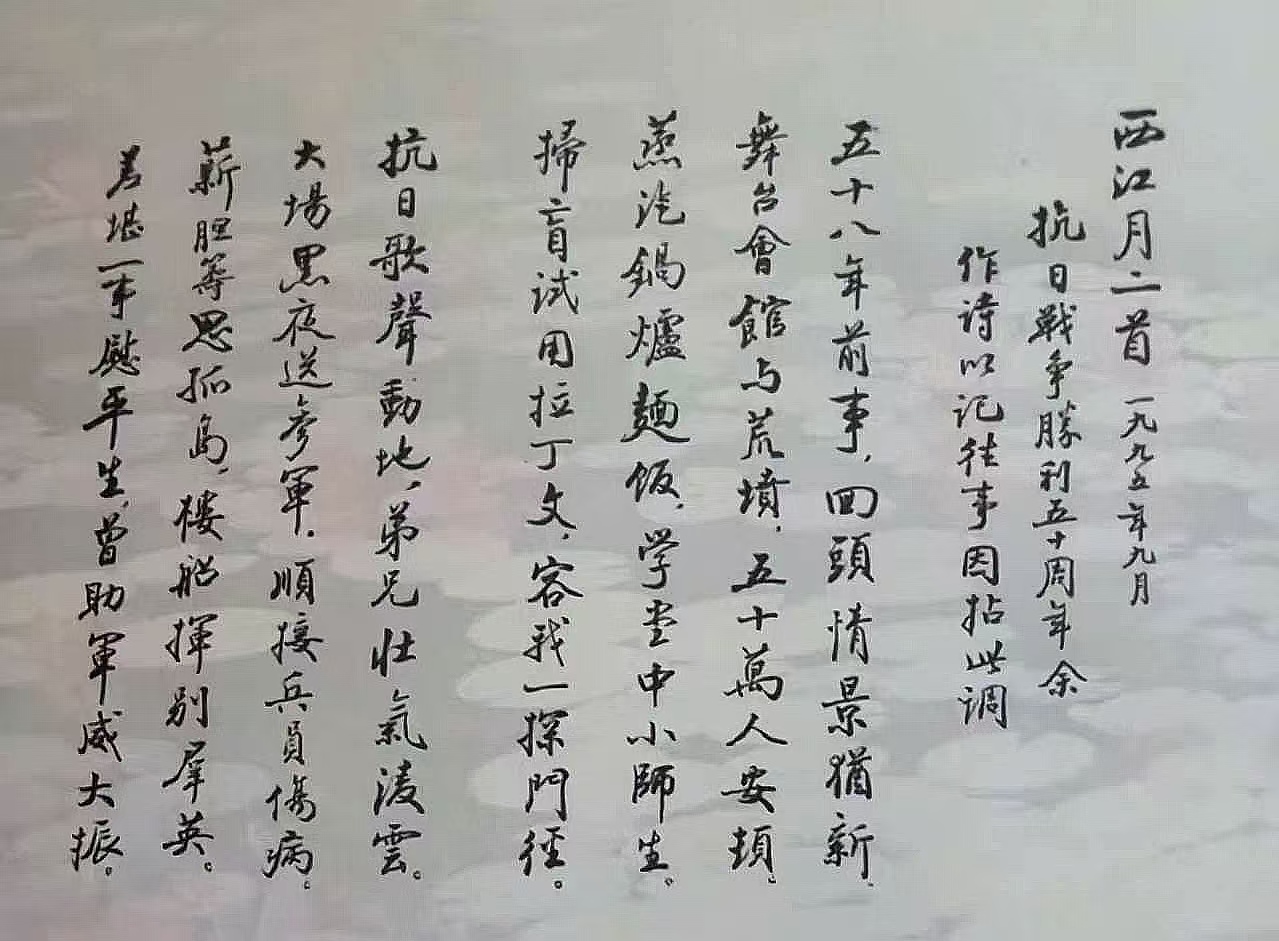 西江月二首 一九九五年九月
抗日戰争勝利五十周年余
作诗以记往事因拈此调
五十八年前事，回頭情景猶新，
舞台會館与荒墳，五十萬人安頓。
蒸汽鍋爐麵饭，学堂中小師生。
掃盲試用拉丁文，容我一探門徑。
抗日歌聲動地，弟兄壮氣淩雲。
大場黑夜送參軍，順接兵員傷病。
薪胆等思孤島，楼船揮别羣英。
差堪一事慰平生，曾助軍威大振。